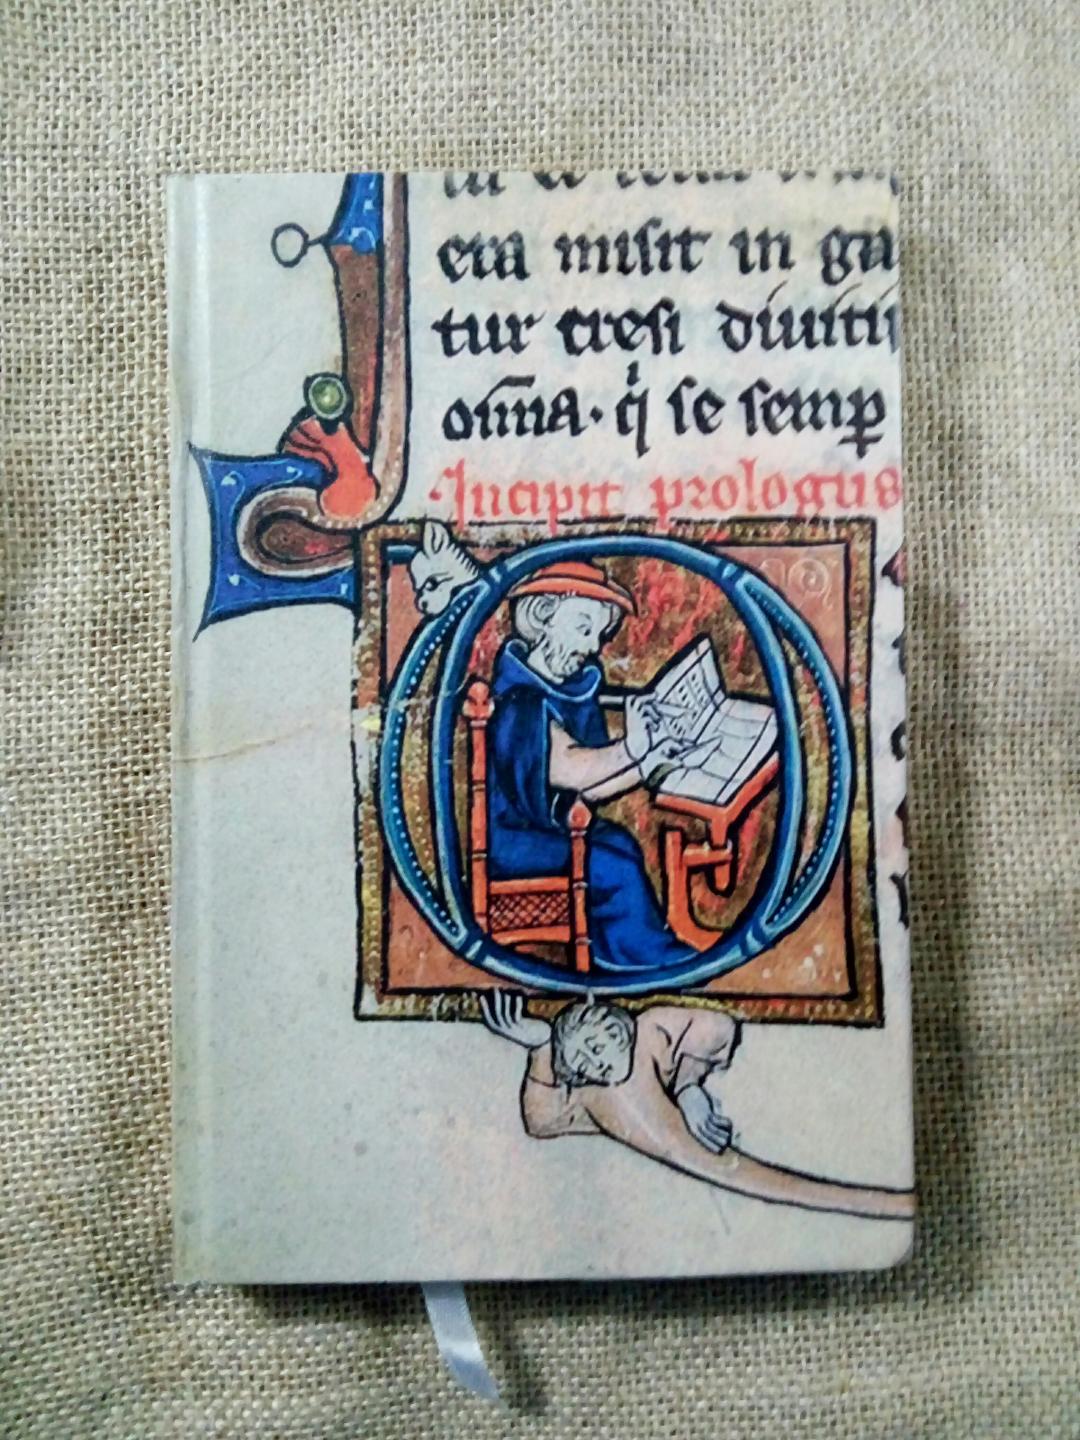 era misit in ga
tur cresi diuitii
om̅ia · qͥ se semꝑ
Incipit prologus